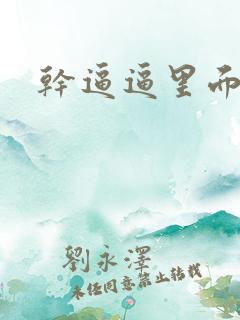 幹逼逼里而
劉永澤
未经同意禁止转载